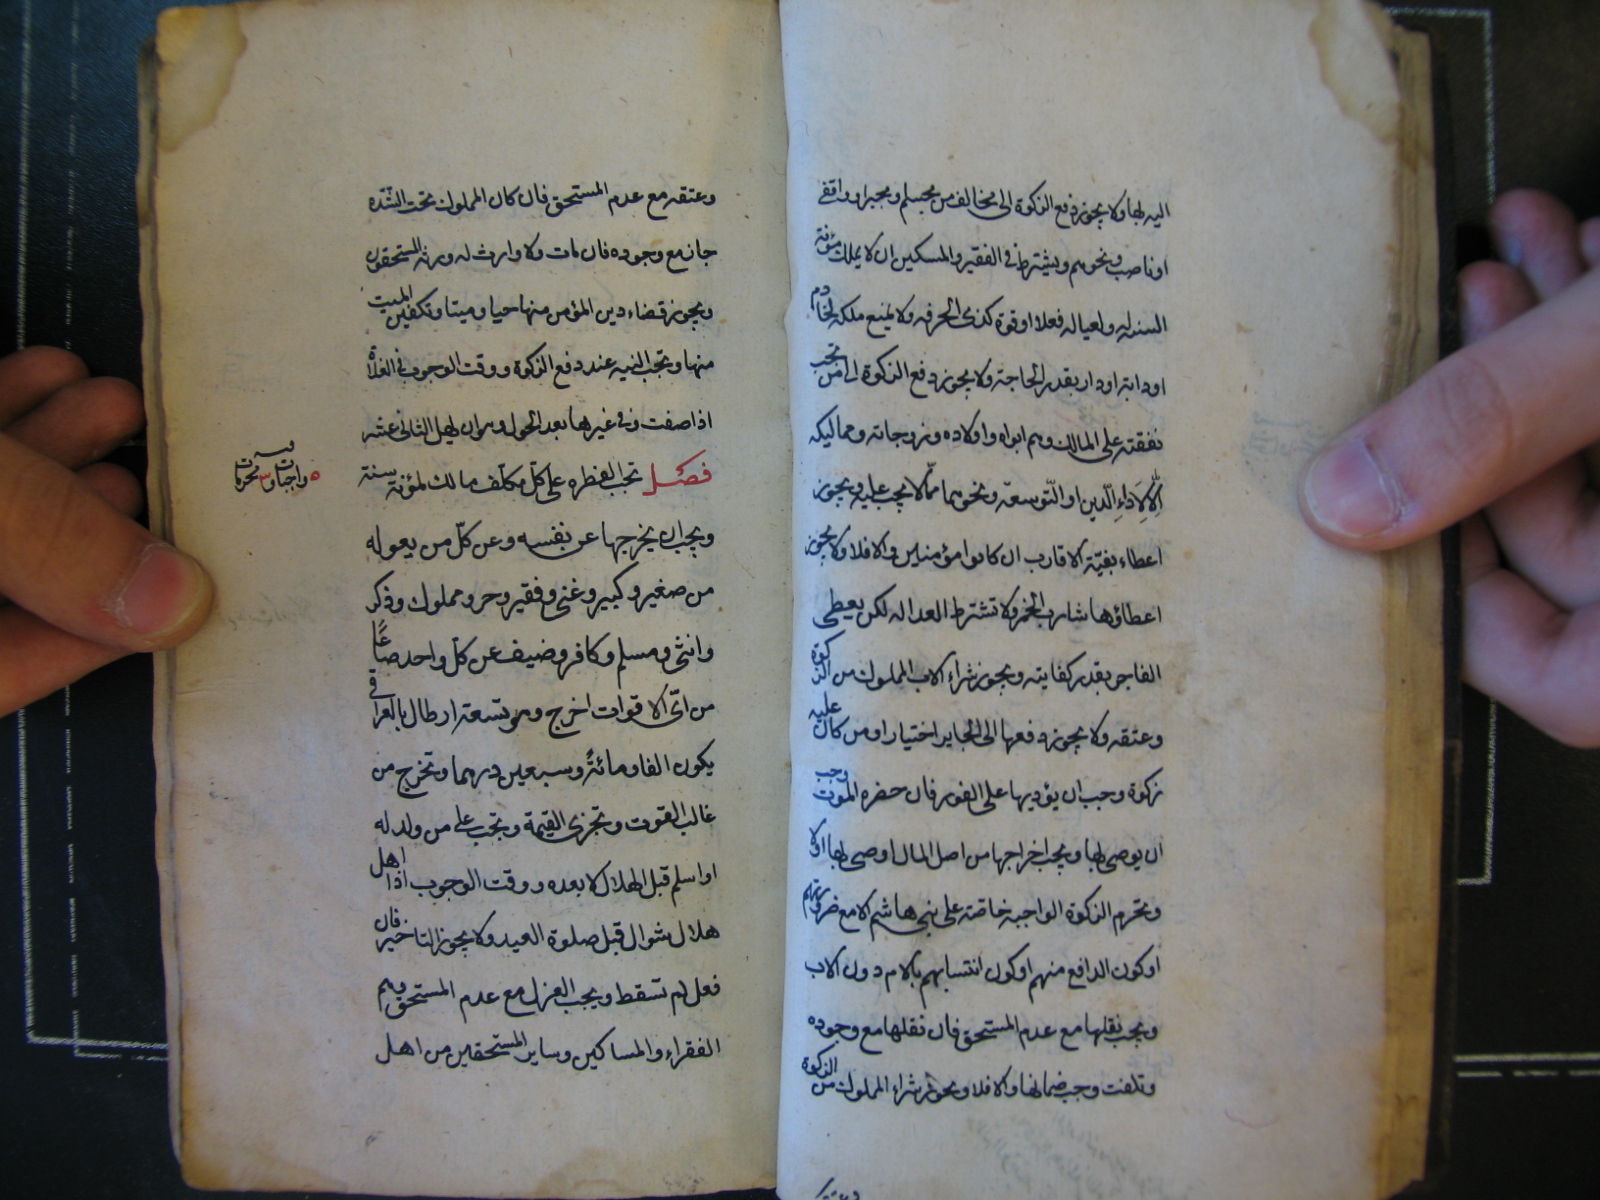 اليه لها ولا يجوز دفع الزكوة الى مخالف من مجسم ومجبر وواقفى
او ناصب ونحوهم ويشترط فى الفقير والمسكين ان لا يملك مؤنة
السنه له ولعياله فعلا او قوة كذى الحرفه ولا يمنع ملكه لخادم
او دابته او دار بقدر الحاجة ولا يجوز دفع الزكوة الى من تجب
نفقته على المالك وهم ابواه واولاده وزوجاته ومماليكه
الا لاداء الدين او التوسعة ونحوهما مما لا يجب عليه ويجوز
اعطاء بقية الاقارب ان كانوا مؤمنين والا فلا ولا يجوز
اعطاؤها شارب الخمر ولا تشترط العداله لكن يعطى
الفاجر بقدر كفايته ويجوز شراء الاب المملوك من الزكوة
وعتقه ولا يجوز دفعها الى الجاير اختيارا ومن كان عليه
زكوة وجب ان يؤديها على الفور فان حضره الموت وجب
ان يوصى بها ويجب اخراجها من اصل المال اوصى بها اولا
وتحرم الزكوة الواجبه خاصة على بنى هاشم الا مع ضرورتهم
او كون الدافع منهم او كون انتسابهم بالام دون الاب
ويجب نقلها مع عدم المستحق فان نقلها مع وجوده
وتلفت وجب ضمانها والا فلا ويجوز شراء المملوك من الزكوة
وعتقه مع عدم المستحق فان كان المملوك تحت الشدة
جاز مع وجوده فان مات ولا وارث له ورثه المستحقون
ويجوز قضاء دين المؤمن منها حيا وميتا وتكفين الميت
منها وتجب النيه عند دفع الزكوة ووقت الوجوب فى الغلاة
اذا صفت وفى غيرها بعد الحول وهو ان يهل الثانى عشر
فصل تجب الفطره على كل مكلف مالك لمؤنة سنة
٥ واجبات و٣ محرمات
ويجب ان يخرجها عن نفسه وعن كل من يعوله
من صغير وكبير وغنى وفقير وحر ومملوك وذكر
وانثى ومسلم وكافر وضيف عن كل واحد صاعا
من اى الاقوات اخرج وهو تسعة ارطال بالعراقى
يكون الفا ومائة وسبعين درهما وتخرج من
غالب القوت وتجزى القيمة وتجب على من ولد له
او اسلم قبل الهلال لا بعده ووقت الوجوب اذا اهل
هلال شوال قبل صلوة العيد ولا يجوز التاخير فان
فعل لم تسقط ويجب العزل مع عدم المستحق وهم
الفقراء والمساكين وساير المستحقين من اهل